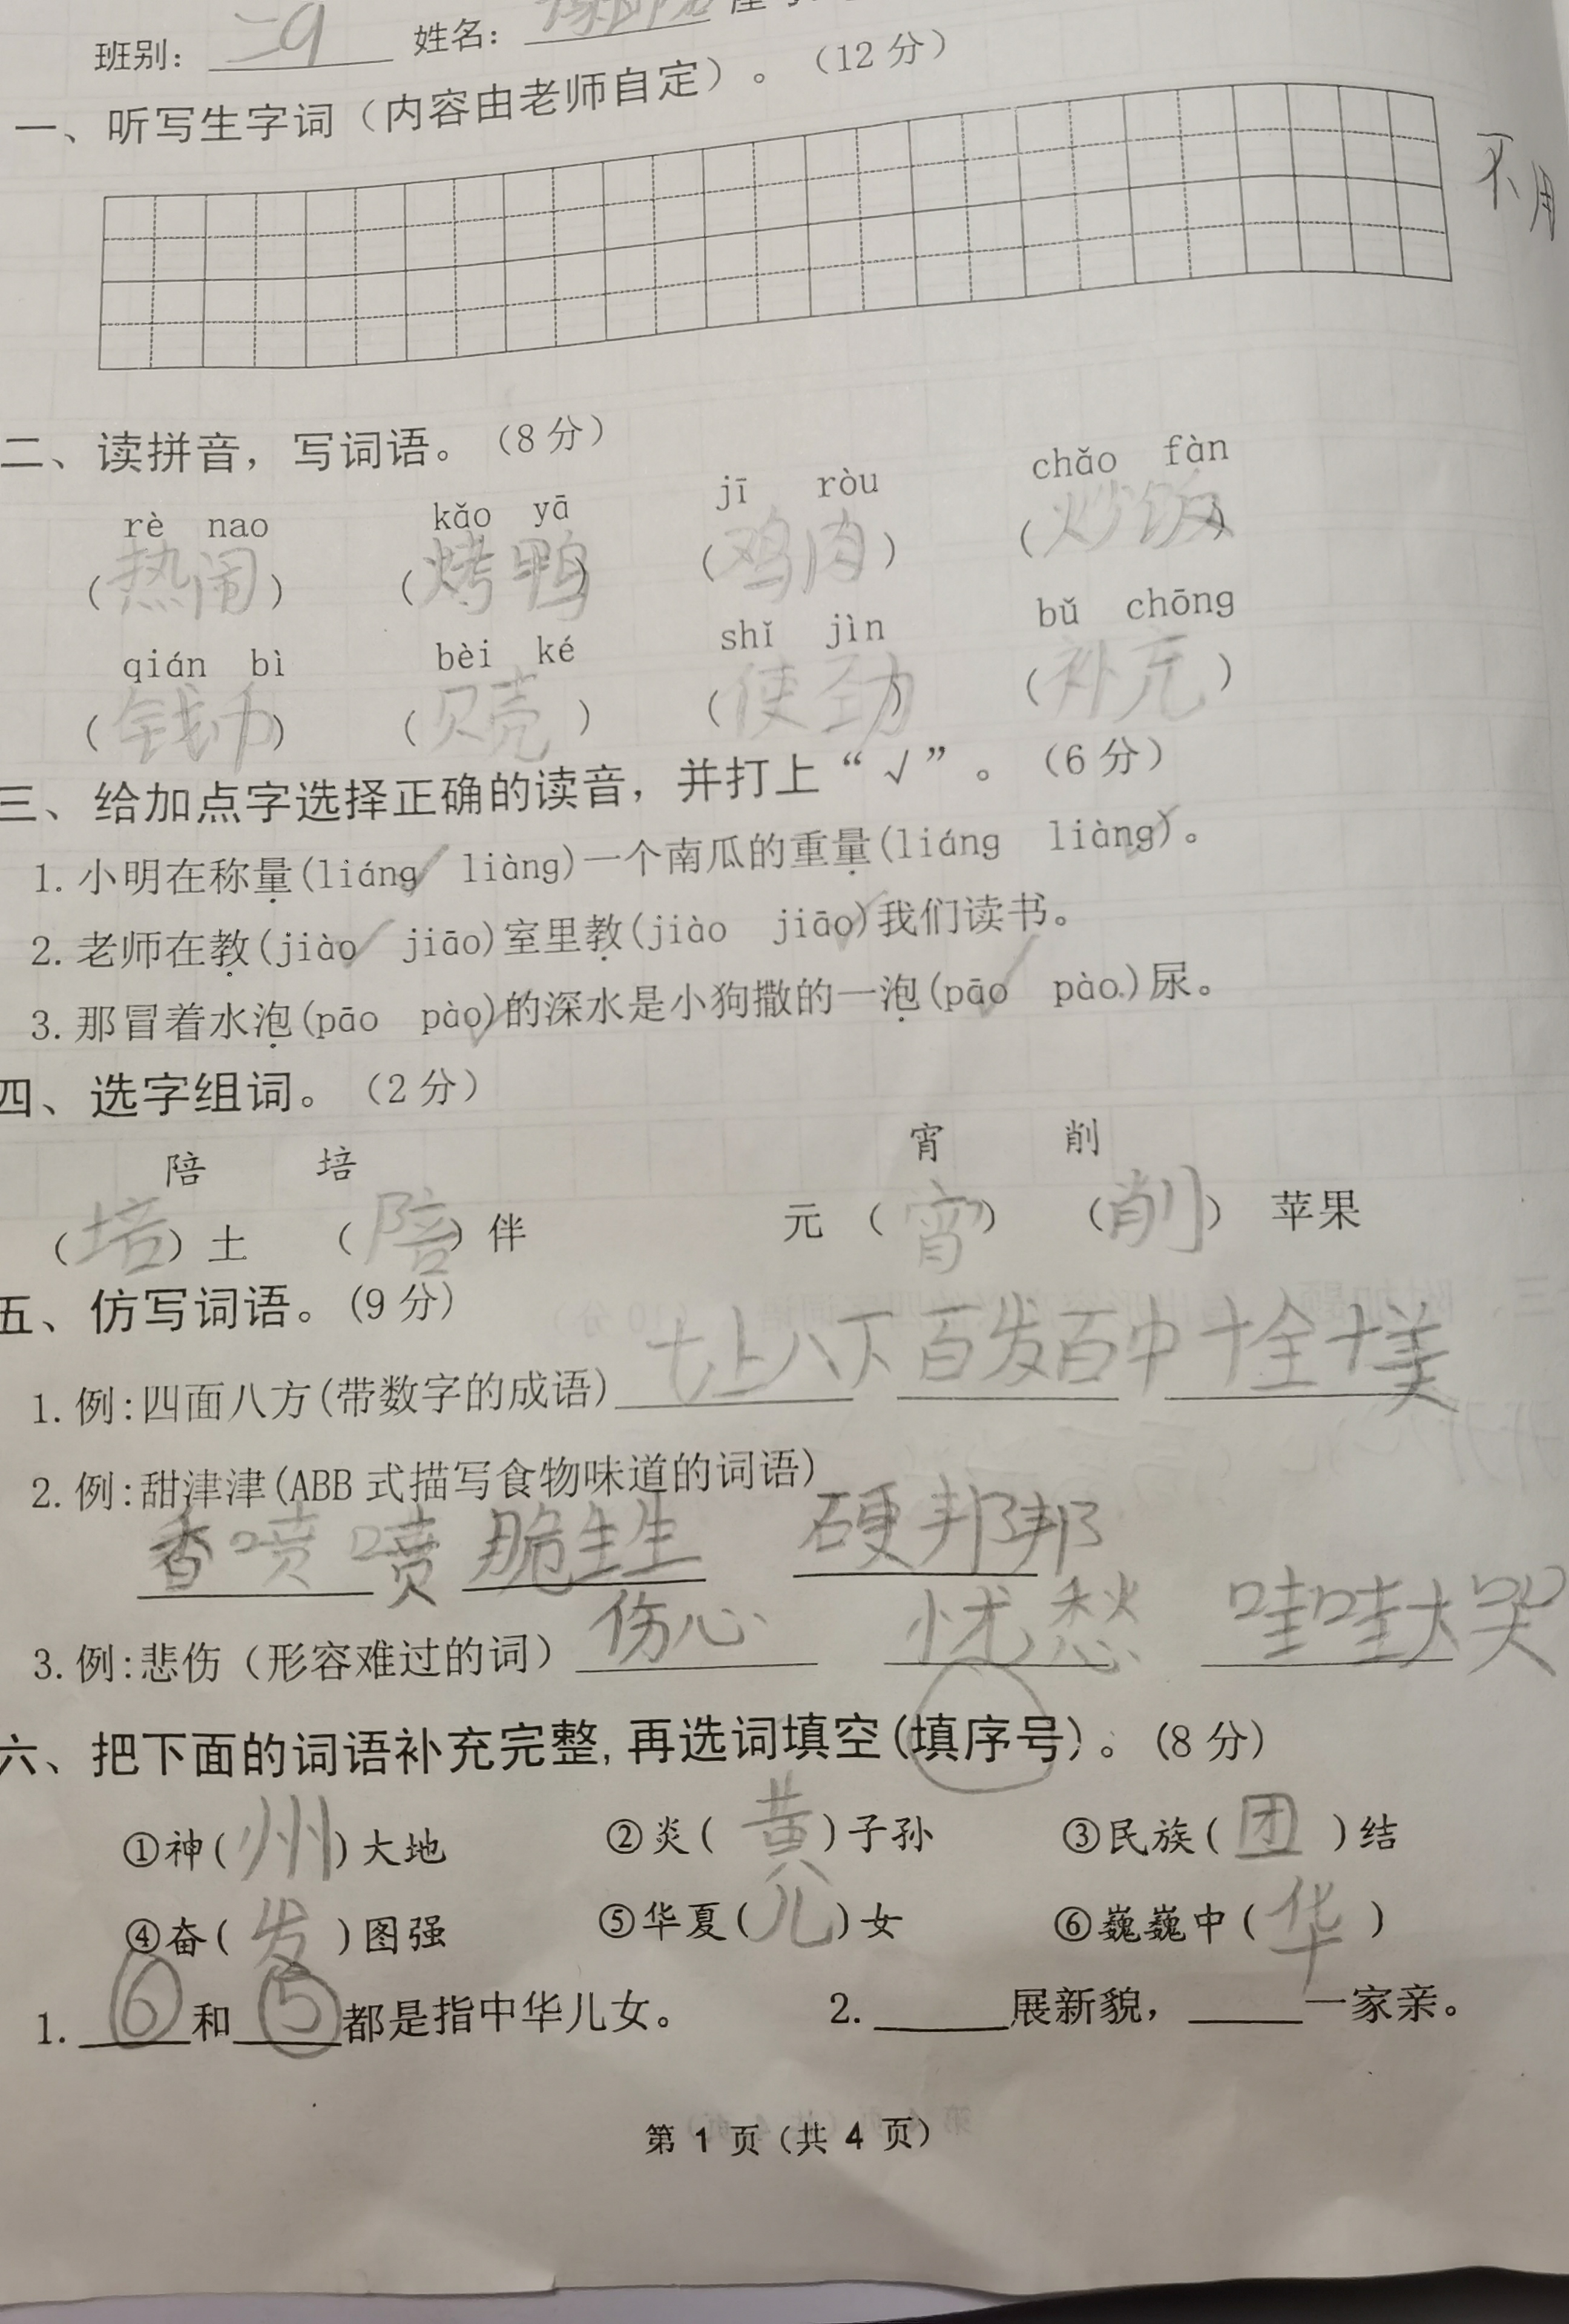 班别： 二9 姓名：
一、听写生字词（内容由老师自定）。（12 分）
不用
二、读拼音，写词语。（8 分）
rè nao kǎo yā jī ròu chǎo fàn
（热闹） （烤鸭） （鸡肉） （炒饭）
qián bì bèi ké shǐ jìn bǔ chōng
（钱币） （贝壳） （使劲） （补充）
三、给加点字选择正确的读音，并打上“√”。（6 分）
1. 小明在称量(liáng√ liàng)一个南瓜的重量(liáng liàng√)。
2. 老师在教(jiào√ jiāo)室里教(jiào jiāo√)我们读书。
3. 那冒着水泡(pāo pào√)的深水是小狗撒的一泡(pāo√ pào)尿。
四、选字组词。（2 分）
陪 培 宵 削
（培）土 （陪）伴 元（宵） （削）苹果
五、仿写词语。(9 分)
1. 例:四面八方(带数字的成语) 七上八下 百发百中 十全十美
2. 例:甜津津(ABB 式描写食物味道的词语)
香喷喷 脆生生 硬邦邦
3. 例:悲伤（形容难过的词） 伤心 忧愁 哇哇大哭
六、把下面的词语补充完整,再选词填空(填序号)。(8 分)
①神(州)大地 ②炎(黄)子孙 ③民族(团)结
④奋(发)图强 ⑤华夏(儿)女 ⑥巍巍中(华)
1. ⑥和⑤都是指中华儿女。 2. ______展新貌，_____一家亲。
第 1 页（共 4 页）